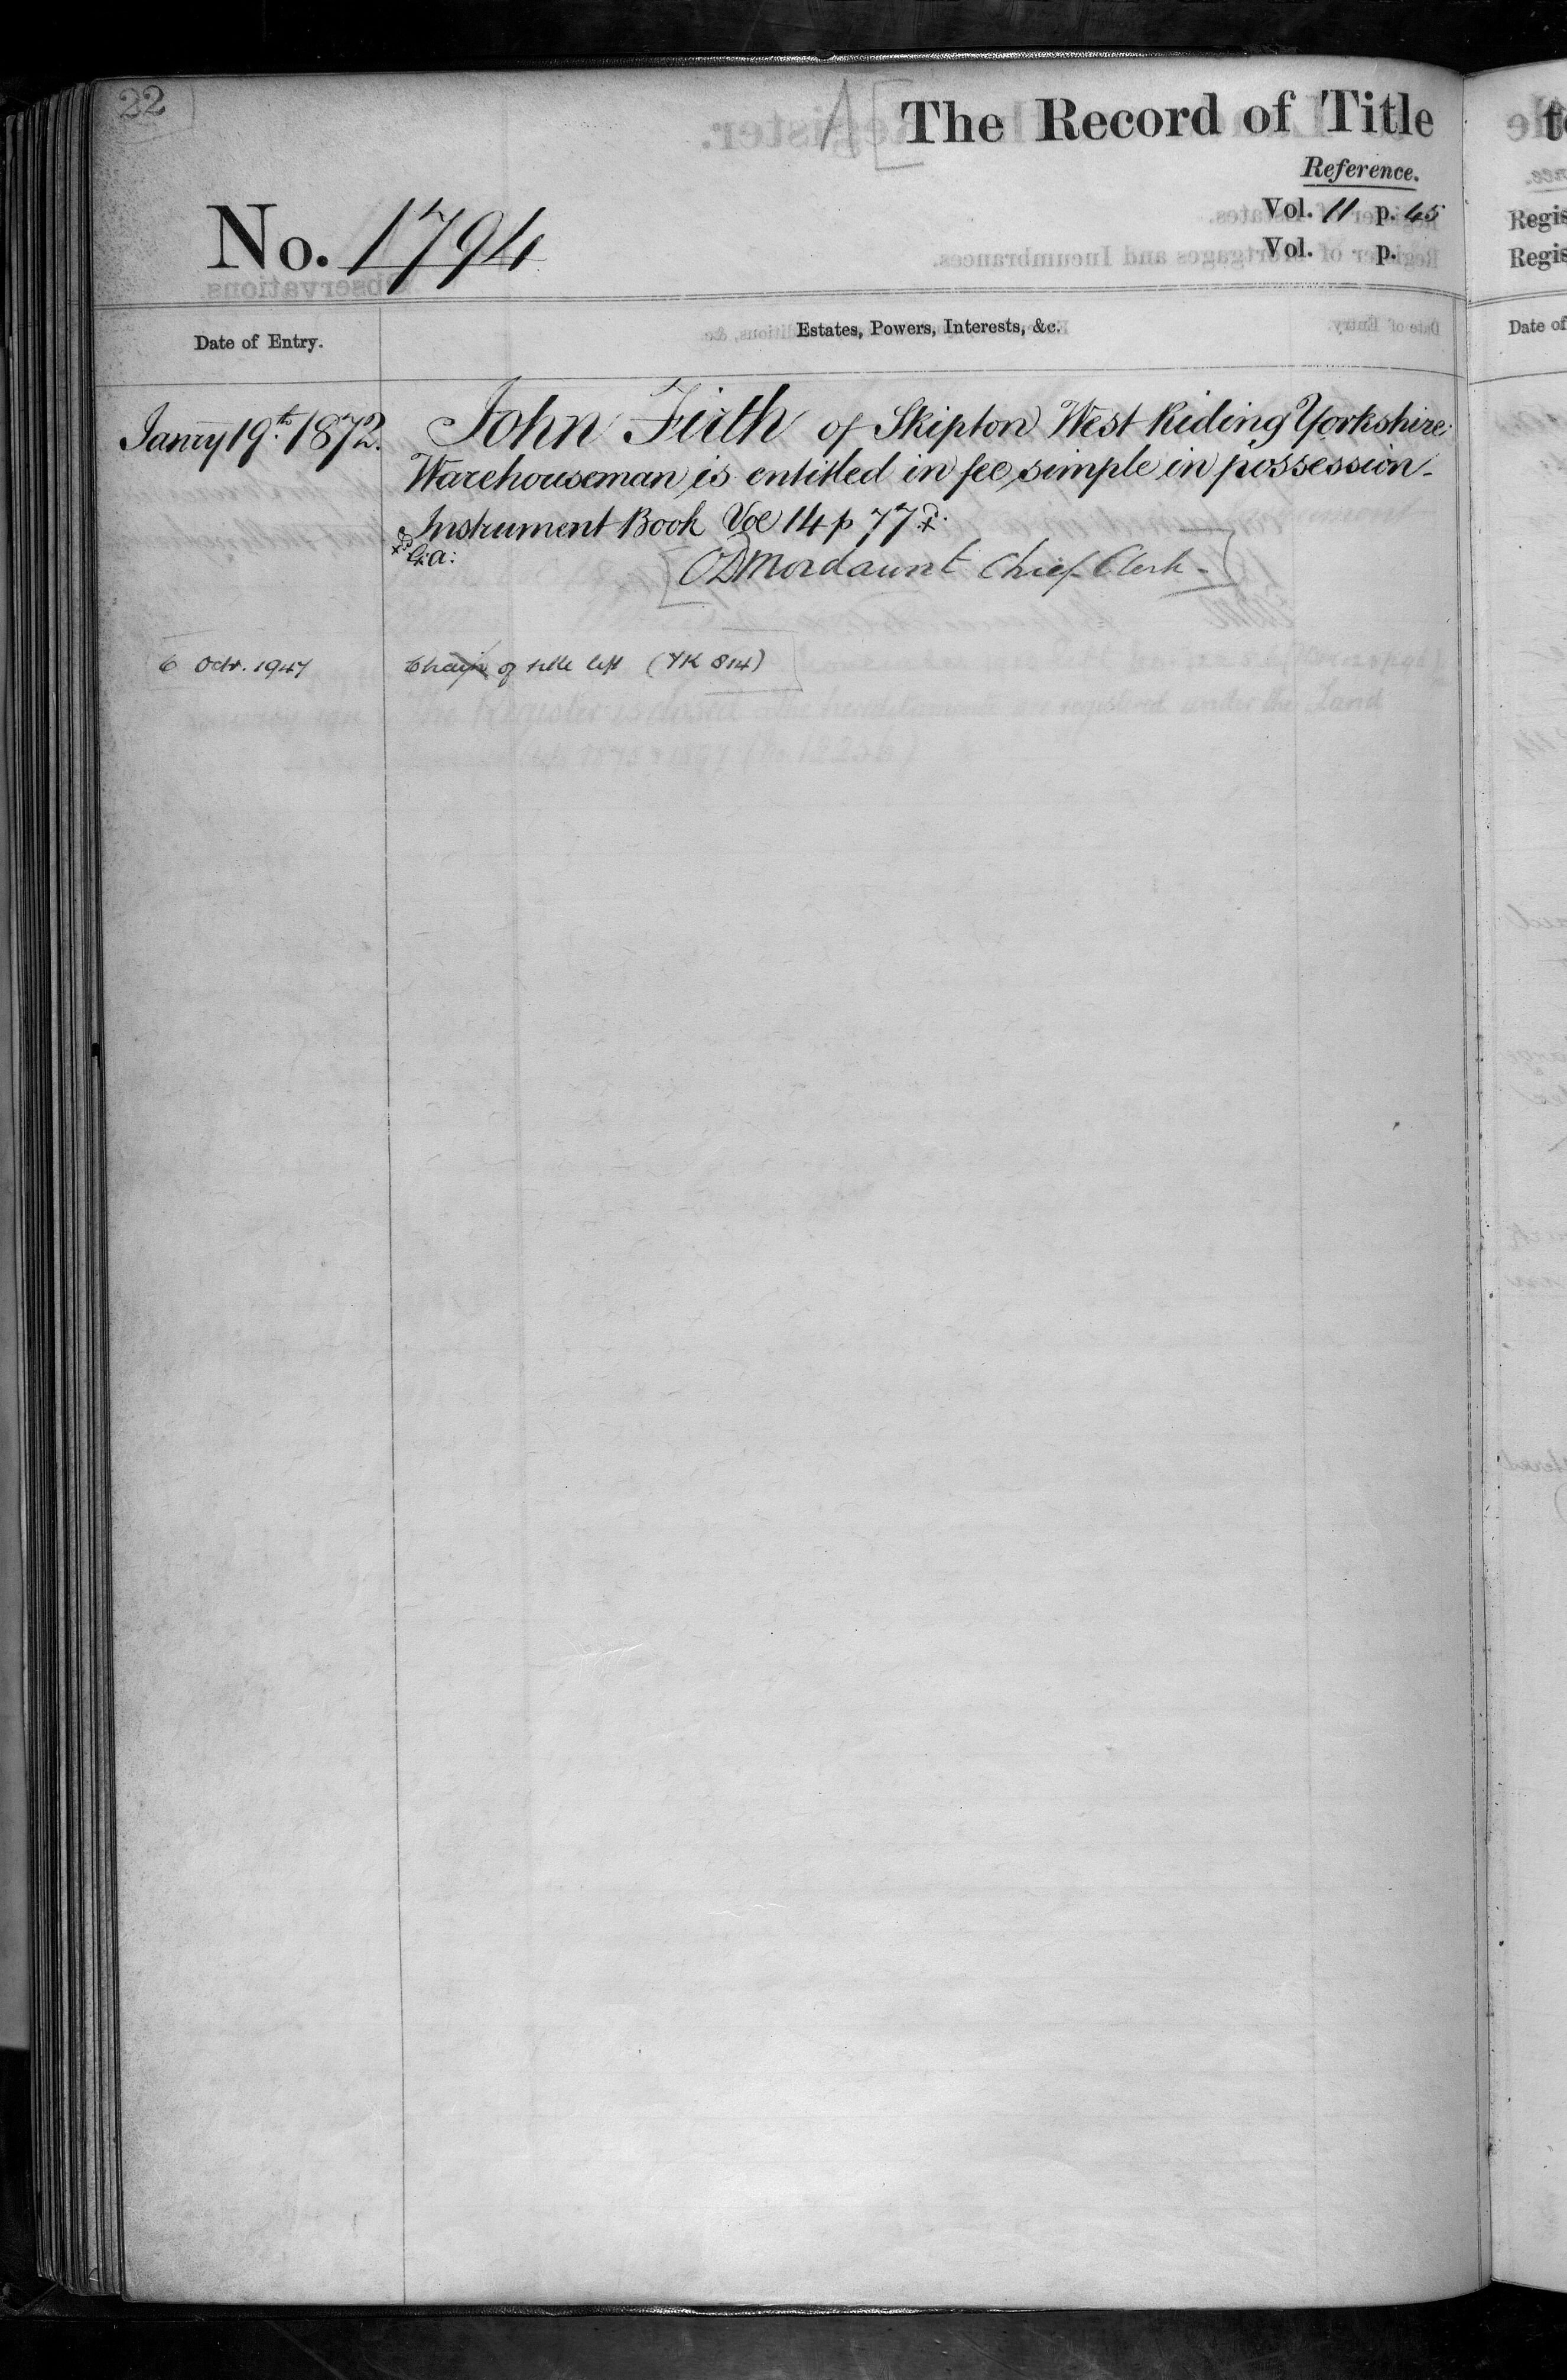 22
The Record of Title
Reference.
No. 1794
Vol. 11 p. 45
Vol. p.
Date of Entry.
Estates, Powers, Interests, &c.
Janry 19th 1872. John Firth of Skipton West Riding Yorkshire
Warehouseman is entitled in fee simple in possession -
Instrument Book Vol 14 p 77
ODMordaunt Chief Clerk -
6 Octr. 1947 Chain of title left (YK 814)
Regis
Regis
Date of